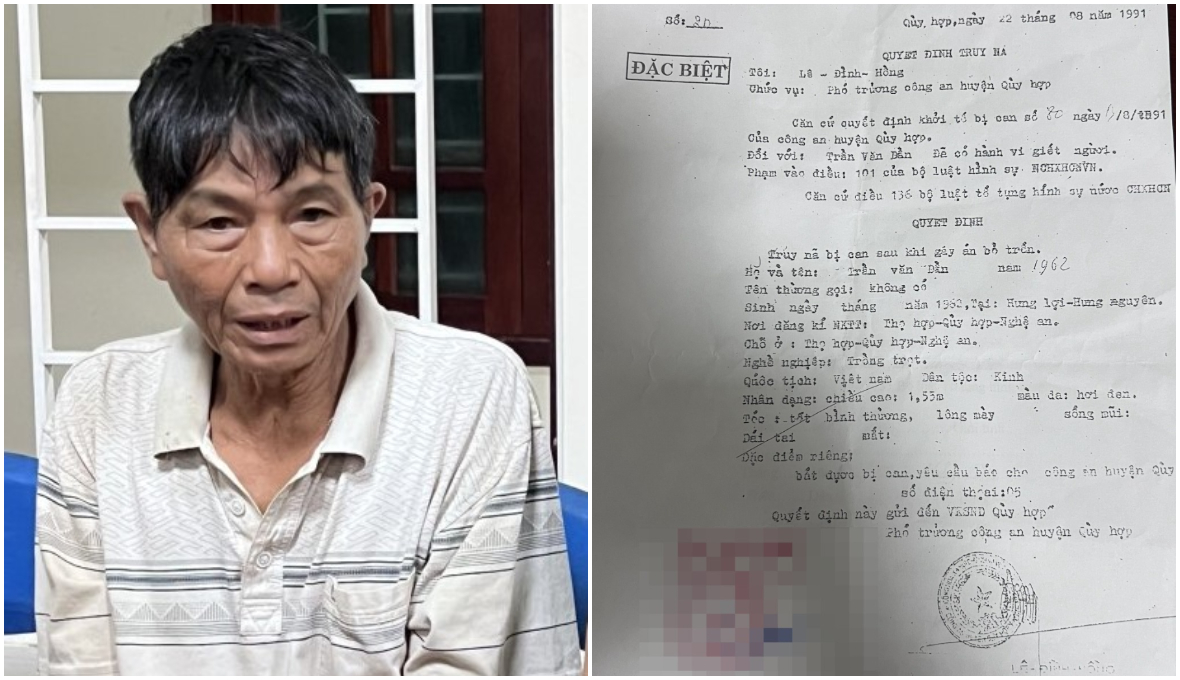 Số: 20
Qùy hợp, ngày 22 tháng 08 năm 1991
QUYET ĐINH TRUY NA
ĐẶC BIỆT
Tôi: Lê - Đình- Hồng
Chức vụ: Phó trưởng công an huyện Qùy hợp
Căn cứ cuyết định khởi tố bị can số 80 ngày /8/1991
Của công an huyện Qùy hợp.
Đối với: Trần Văn Dần Đã có hành vi giết người.
Phạm vào điều: 101 của bộ luật hình sự NCHXHCNVN.
Căn cứ điều 136 bộ luật tố tụng hình sự nước CHXHCN
QUYET ĐINH
Truy nã bị can sau khi gây án bỏ trốn.
Họ và tên: Trần văn Dần nam 1962
Tên thường gọi: không có
Sinh ngày tháng năm 1962, Tại: Hưng lợi-Hưng nguyên.
Nơi đăng kí NKTT: Thọ hợp-Qùy hợp-Nghệ an.
Chỗ ở : Thọ hợp-Qùy hợp-Nghệ an.
Nghề nghiệp: Trồng trọt.
Quốc tịch: Việt nam Dân tộc: Kinh
Nhân dạng: chiều cao: 1,53m mầu da: hơi đen.
Tóc : tốt bình thường, lông mày sống mũi:
Dái tai mắt:
Đặc điểm riêng:
bắt được bị can, yêu cầu báo cho công an huyện Qùy
số điện thọai: 05
Quyết định này gửi đến VKSND Qùy hợp
Phó trưởng công an huyện Qùy hợp
LÊ-ĐÌNH-HỒNG